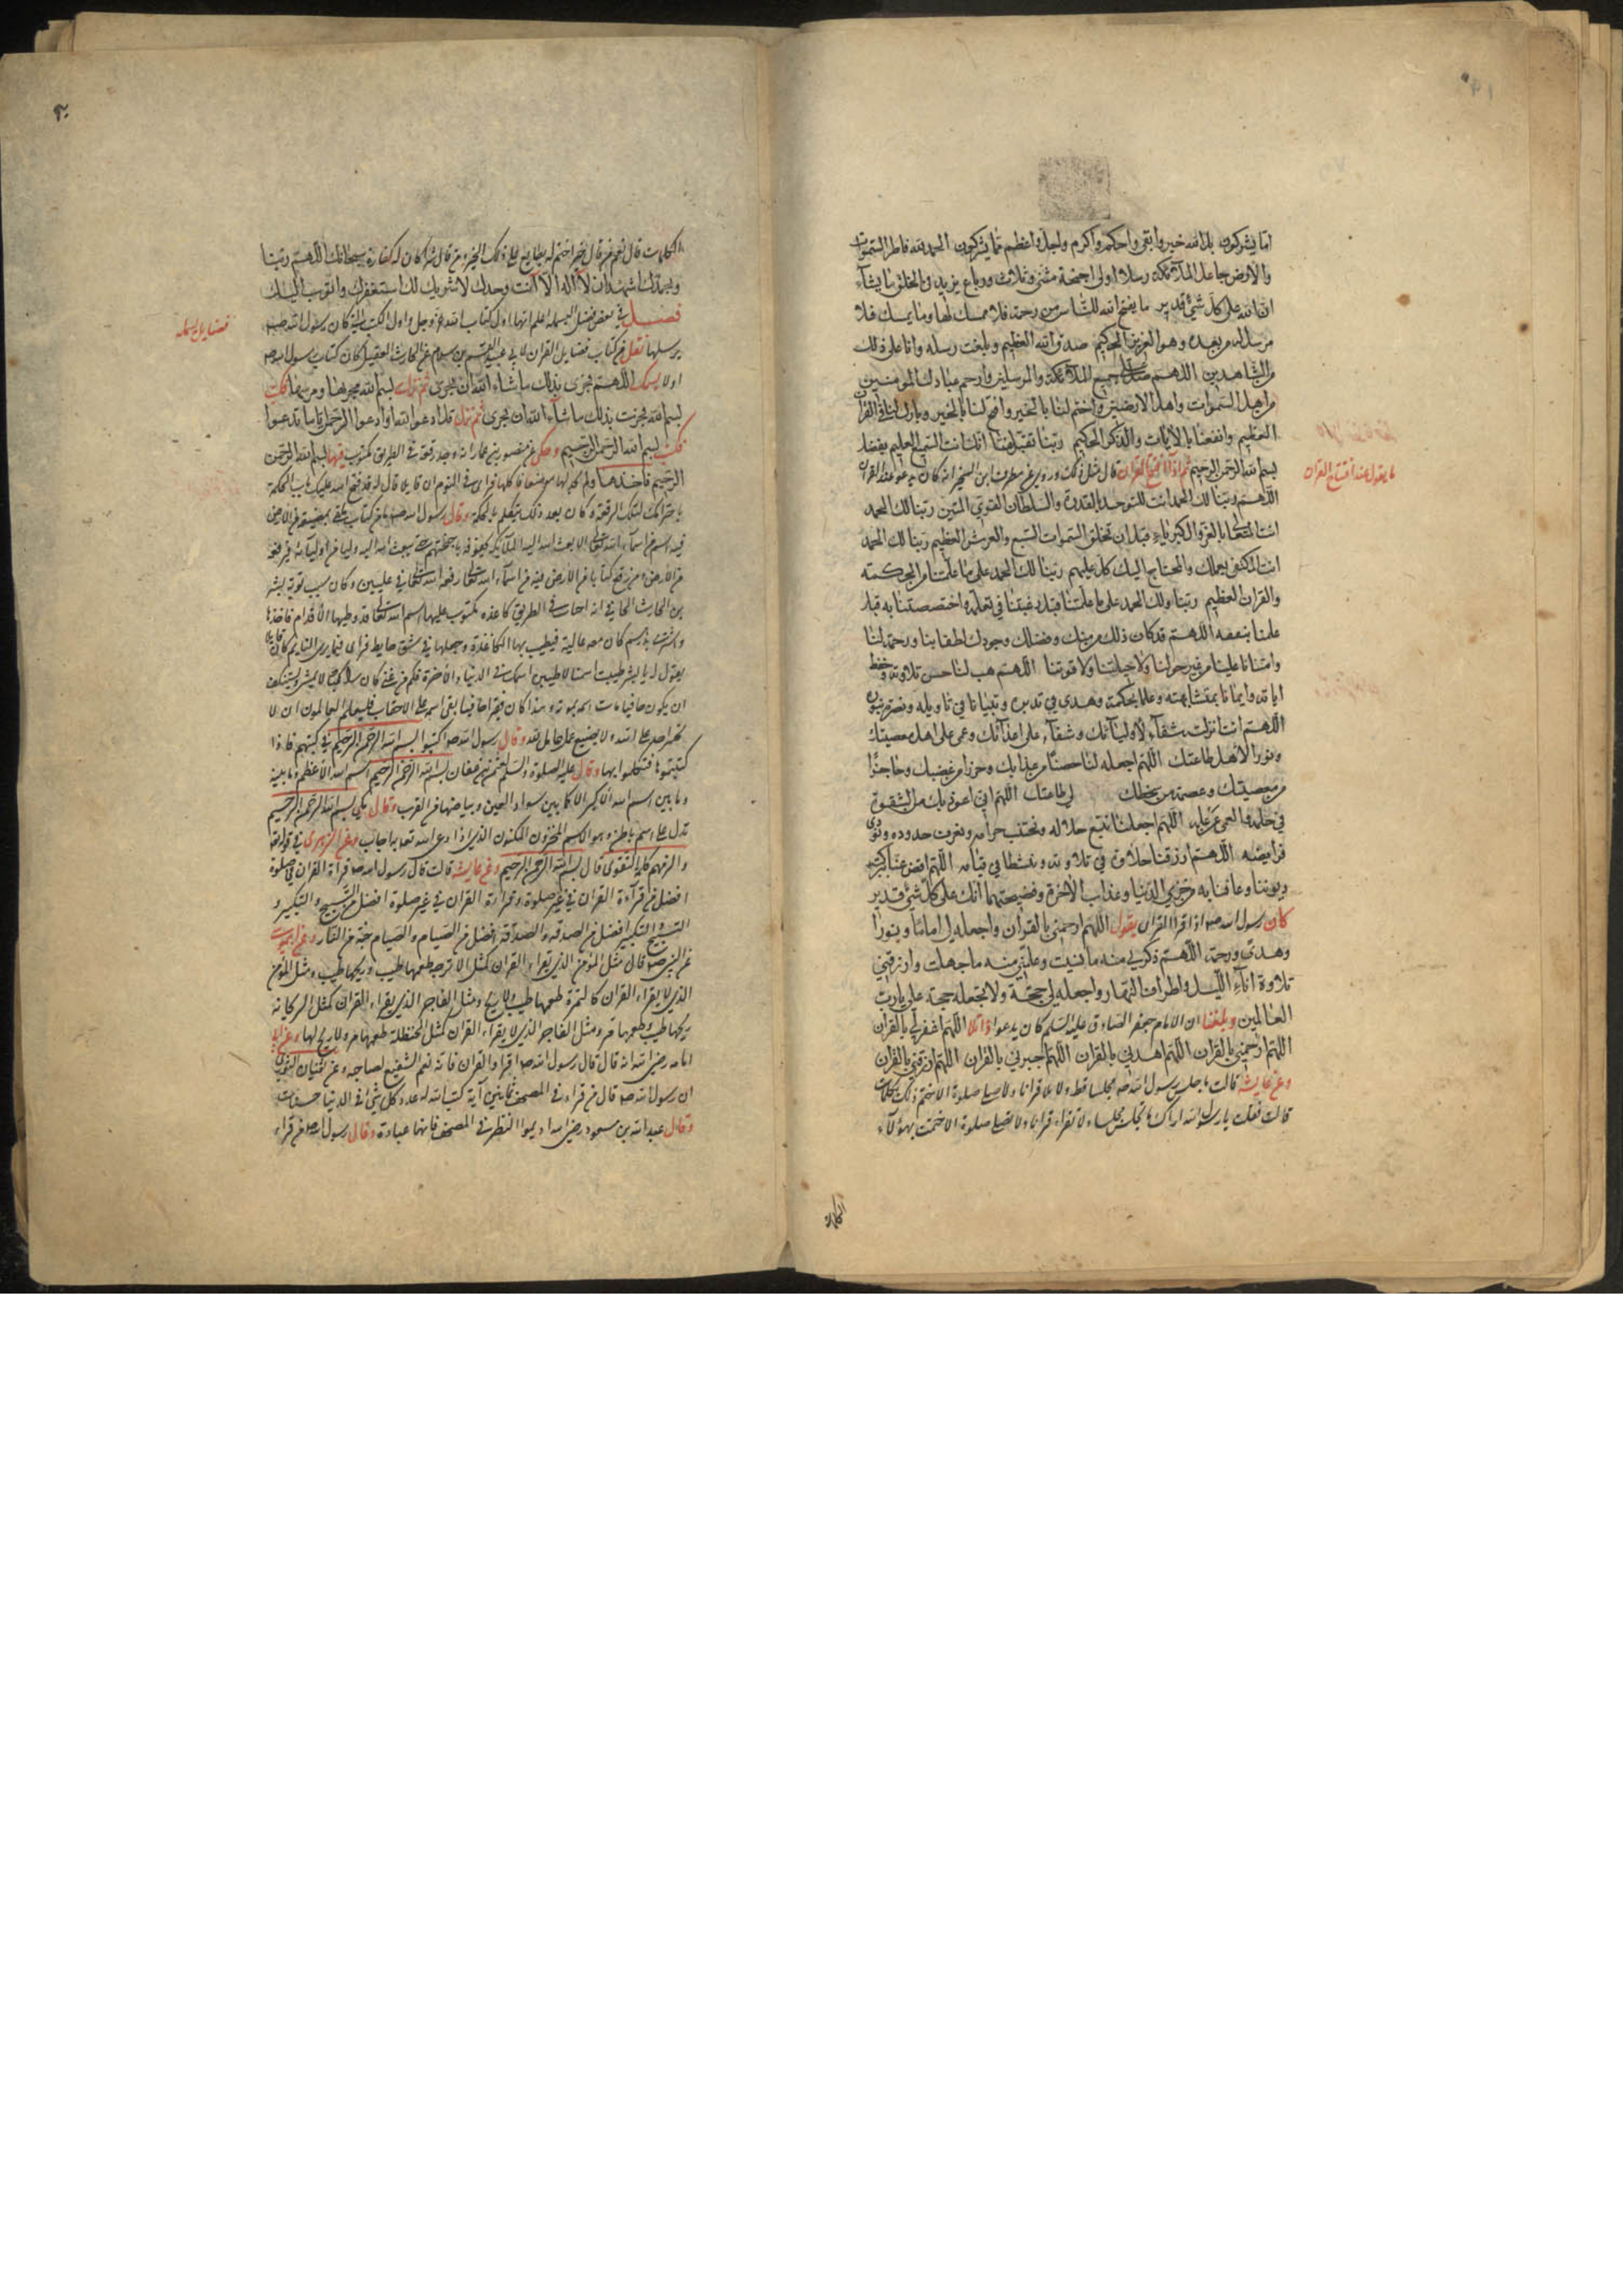 اما يشركون بل الله خير وابقى واحكم واكرم واجل واعظم مما يشركون الحمد لله فاطر السموات
والارض جاعل الملآئكة رسلا اولى اجنحة مثنى وثلاث ورباع يزيد فى الخلق ما يشآء
ان الله على كل شئ قدير ما يفتح الله للناس من رحمة فلا ممسك لها وما يمسك فلا
مرسل له من بعده وهو العزيز الحكيم صدق الله العظيم وبلغت رسله وانا على ذلك
من الشاهدين اللهم صل على جميع الملآئكة والمرسلين وارحم عبادك المؤمنين
من اهل السموات واهل الارضين واختم لنا بالخير وافتح لنا بالخير وبارك لنا فى القران
العظيم وانفعنا بالايات والذكر الحكيم ربنا تقبل منا انك انت السميع العليم بفضل
بسم الله الرحمن الرحيم ثم اذا افتتح القران قال مثل ذلك وروى عن مطرف ابن الشخير انه كان يدعو عند القران
ما يقول عند افتتاح القران
اللهم ربنا لك الحمد انت المتوحد بالقدرة والسلطان القوى المتين ربنا لك الحمد
انت المتعالى بالعز والكبرياء قبل ان تخلق السموات السبع والعرش العظيم ربنا لك الحمد
انت المكتفى بعملك والمحتاج اليك كل عليم ربنا لك الحمد على ما علمتنا من الحكمة
والقران العظيم ربنا ولك الحمد على ما علمتنا قبل رغبتنا فى تعلمه واختصصتنا به قبل
علمنا بنفعه اللهم قد كان ذلك من منك وفضلك وجودك لطفا بنا ورحمة لنا
وامتنانا علينا من غير حولنا ولا حيلتنا ولا قوتنا اللهم هب لنا حسن تلاوته وحفظ
اياته وايمانا بمتشابهه وعلما بمحكمه وهدى فى تدبره وتبيانا فى تاويله وبصيرة بنوره
اللهم انت انزلته شفآء لاوليآئك وشقآء على اعدآئك وعمى على اهل معصيتك
ونورا لاهل طاعتك اللهم اجعله لنا حصنا من عذابك وحرزا من غضبك وحاجزا
من معصيتك وعصمة من سخطك لى طاعتك اللهم انى اعوذ بك من الشقوة
فى حمله والعمى عن علمه اللهم اجعلنا نتبع حلاله ونجتنب حرامه ونعرف حدوده ونؤدى
فرايضه اللهم ارزقنا حلاوة فى تلاوته ونشطا فى قيامه اللهم اقض عنا به
ديوننا وعافنا به من خزى الدنيا وعذاب الاخرة وفضيحتهما انك على كل شئ قدير
كان رسول الله صه اذا قرا القران يقول اللهم ارحمنى بالقران واجعله لى اماما ونورا
وهدى ورحمة اللهم ذكرنى منه ما نسيت وعلمنى منه ما جهلت وارزقنى
تلاوته انآء الليل واطراف النهار واجعله لى حجة ولا تجعله حجة على يا رب
العالمين وبلغنا ان الامام جعفر الصادق عليه السلم كان يدعوا اذا تلا اللهم اغفر لى بالقران
اللهم ارحمنى بالقران اللهم اهدنى بالقران اللهم اجبرنى بالقران اللهم ارزقنى بالقران
وعن عايشة قالت ما جلس رسول الله صه مجلسا قط ولا تلا قرانا ولا صلى صلوة الا ختم ذلك بكلمات
قالت فقلت يا رسول الله اراك ما تجلس مجلسا ولا تقراء قرانا ولا تصلى صلوة الا ختمت بهؤلآء
الكلمات
الكلمات قال نعم من قال خيرا ختم له بطابع على ذلك الخير ومن قال شرا كان له كفارة سبحانك اللهم ربنا
وبحمدك اشهد ان لآ اله الآ انت وحدك لا شريك لك استغفرك واتوب اليك
فصل فى بعض فضل البسملة اعلم انها اول كتاب الله عز وجل واول الكتب التى كان رسول الله صه
فضايل بسمله
يرسلها نقل من كتاب فضايل القران لابى عبيد القسم بن سلام عن الحارث العقيلى كان كتاب رسول الله صه
اولا بسمك اللهم فجرى بذلك ما شاء الله ان يجرى ثم نزلت بسم الله مجريها ومرسيها فكتب
بسم الله فجرت بذلك ما شآء الله ان يجرى ثم نزل قل ادعوا الله او ادعوا الرحمن اياما تدعوا
فكتب بسم الله الرحمن الرحيم وحكى عن منصور بن عمار انه وجد رقعة فى الطريق مكتوب فيها بسم الله الرحمن
الرحيم فاخذها ولم يجد لها موضعا فاكلها فراى فى النوم ان قايلا قال له قد فتح الله عليك باب الحكمة
باحترامك لتلك الرقعة وكان بعد ذلك يتكلم بالحكمة وقال رسول الله صه ما من كتاب يلقى بمضيعة من الارض
فيه اسم من اسمآء الله تعالى الا بعث الله اليه الملآئكة يحفونه باجنحتهم حتى يبعث الله اليه وليا من اوليآئه فيرفعه
من الارض ومن رفع كتابا من الارض فيه من اسمآء الله تعالى رفعه الله تعالى فى عليين وكان سبب توبة بشر
بن الحارث الحافى انه اصاب فى الطريق كاغذه مكتوب عليها اسم الله تعالى قد وطيها الاقدام فاخذها
واشترى بدرهم كان معه غالية فيطيب بها الكاغذة وجعلها فى شق حايط فراى فيما يرى النايم كان قايلا
يقول له يا بشر طيبت اسمنا لاطيبن اسمك فى الدنيا والاخرة
وقال رسول الله صه اكتبوا بسم الله الرحمن الرحيم فى كتبهم فاذا
كتبتموها فتكلموا بها وقال عليه الصلوة والسلم
وما بين اسم الله الاكبر الا كما بين سواد العين وبياضها من القرب وقال على بسم الله الرحمن الرحيم
تدل على اسم باطن وهو الاسم المخزون المكنون الذى اذا دعى الله تعالى به اجاب وعن الزهرى فى قوله تعالى
والزمهم كلمة التقوى قال بسم الله الرحمن الرحيم وعن عايشة قالت قال رسول الله صه قرآءة القران فى صلوة
افضل من قرآءة القران فى غير صلوة وقراءة القران فى غير صلوة افضل من التسبيح والتكبير و
التسبيح والتكبير افضل من الصدقة والصدقة افضل من الصيام والصيام جنة من النار وعن ابى موسى
عن النبى صه قال مثل المؤمن الذى يقراء القران كمثل الاترجه طعمها طيب وريحها طيب ومثل المؤمن
الذى لا يقراء القران كالتمرة طعمها طيب ولا ريح ومثل الفاجر الذى يقراء القران كمثل الريحانه
ريحها طيب وطعمها مر ومثل الفاجر الذى لا يقراء القران كمثل الحنظلة طعمها مر ولا ريح لها وعن ابى
امامه رضى الله انه قال قال رسول الله صه اقراوا القران فانه نعم الشفيع لصاحبه وعن
ان رسول الله صه قال من قراء فى المصحف مائتى آية كتب الله له عدد كل شئ فى الدنيا حسنات
وقال عبدالله بن مسعود رضى الله اديموا النظر فى المصحف فانها عبادة وقال رسول الله صه من قراء